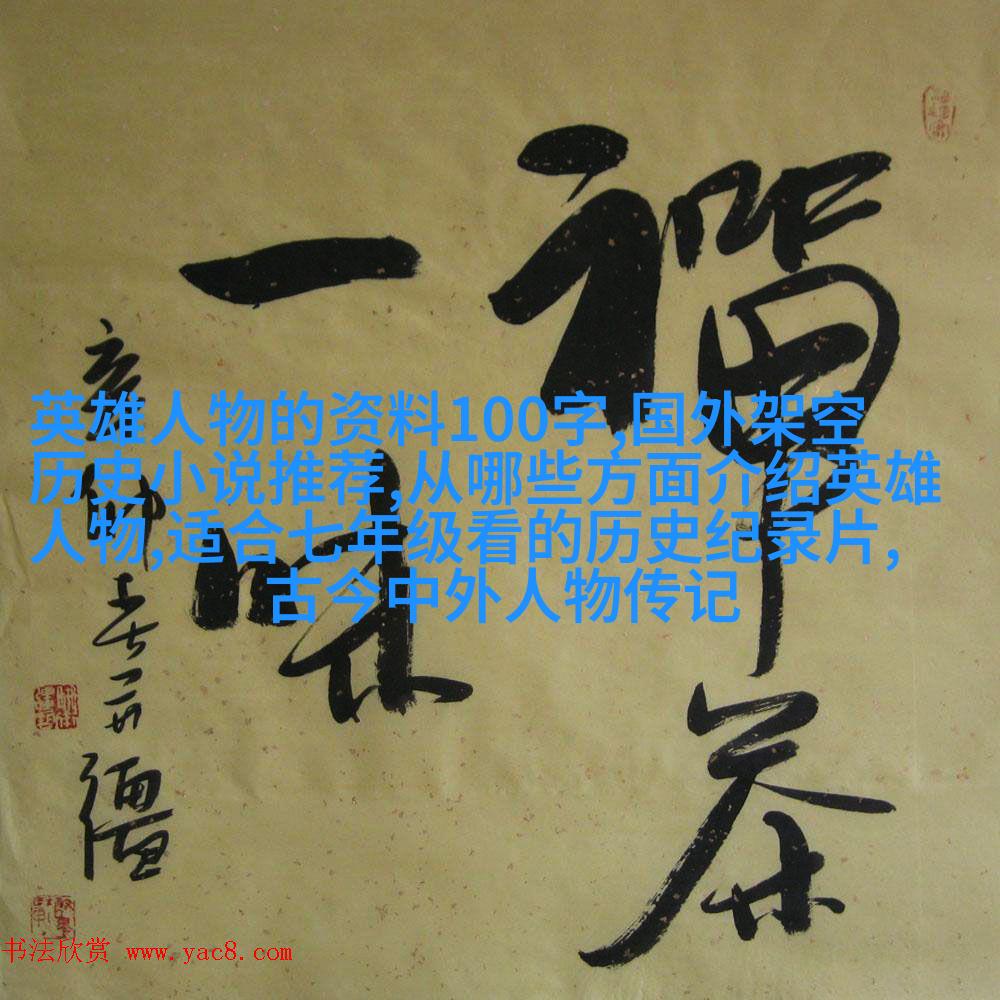 禅茶
一味
英雄人物的资料100字,国外架空
历史小说推荐,从哪些方面介绍英雄
人物,适合七年级看的历史纪录片,
古今中外人物传记
书法欣赏 www.yac8.com